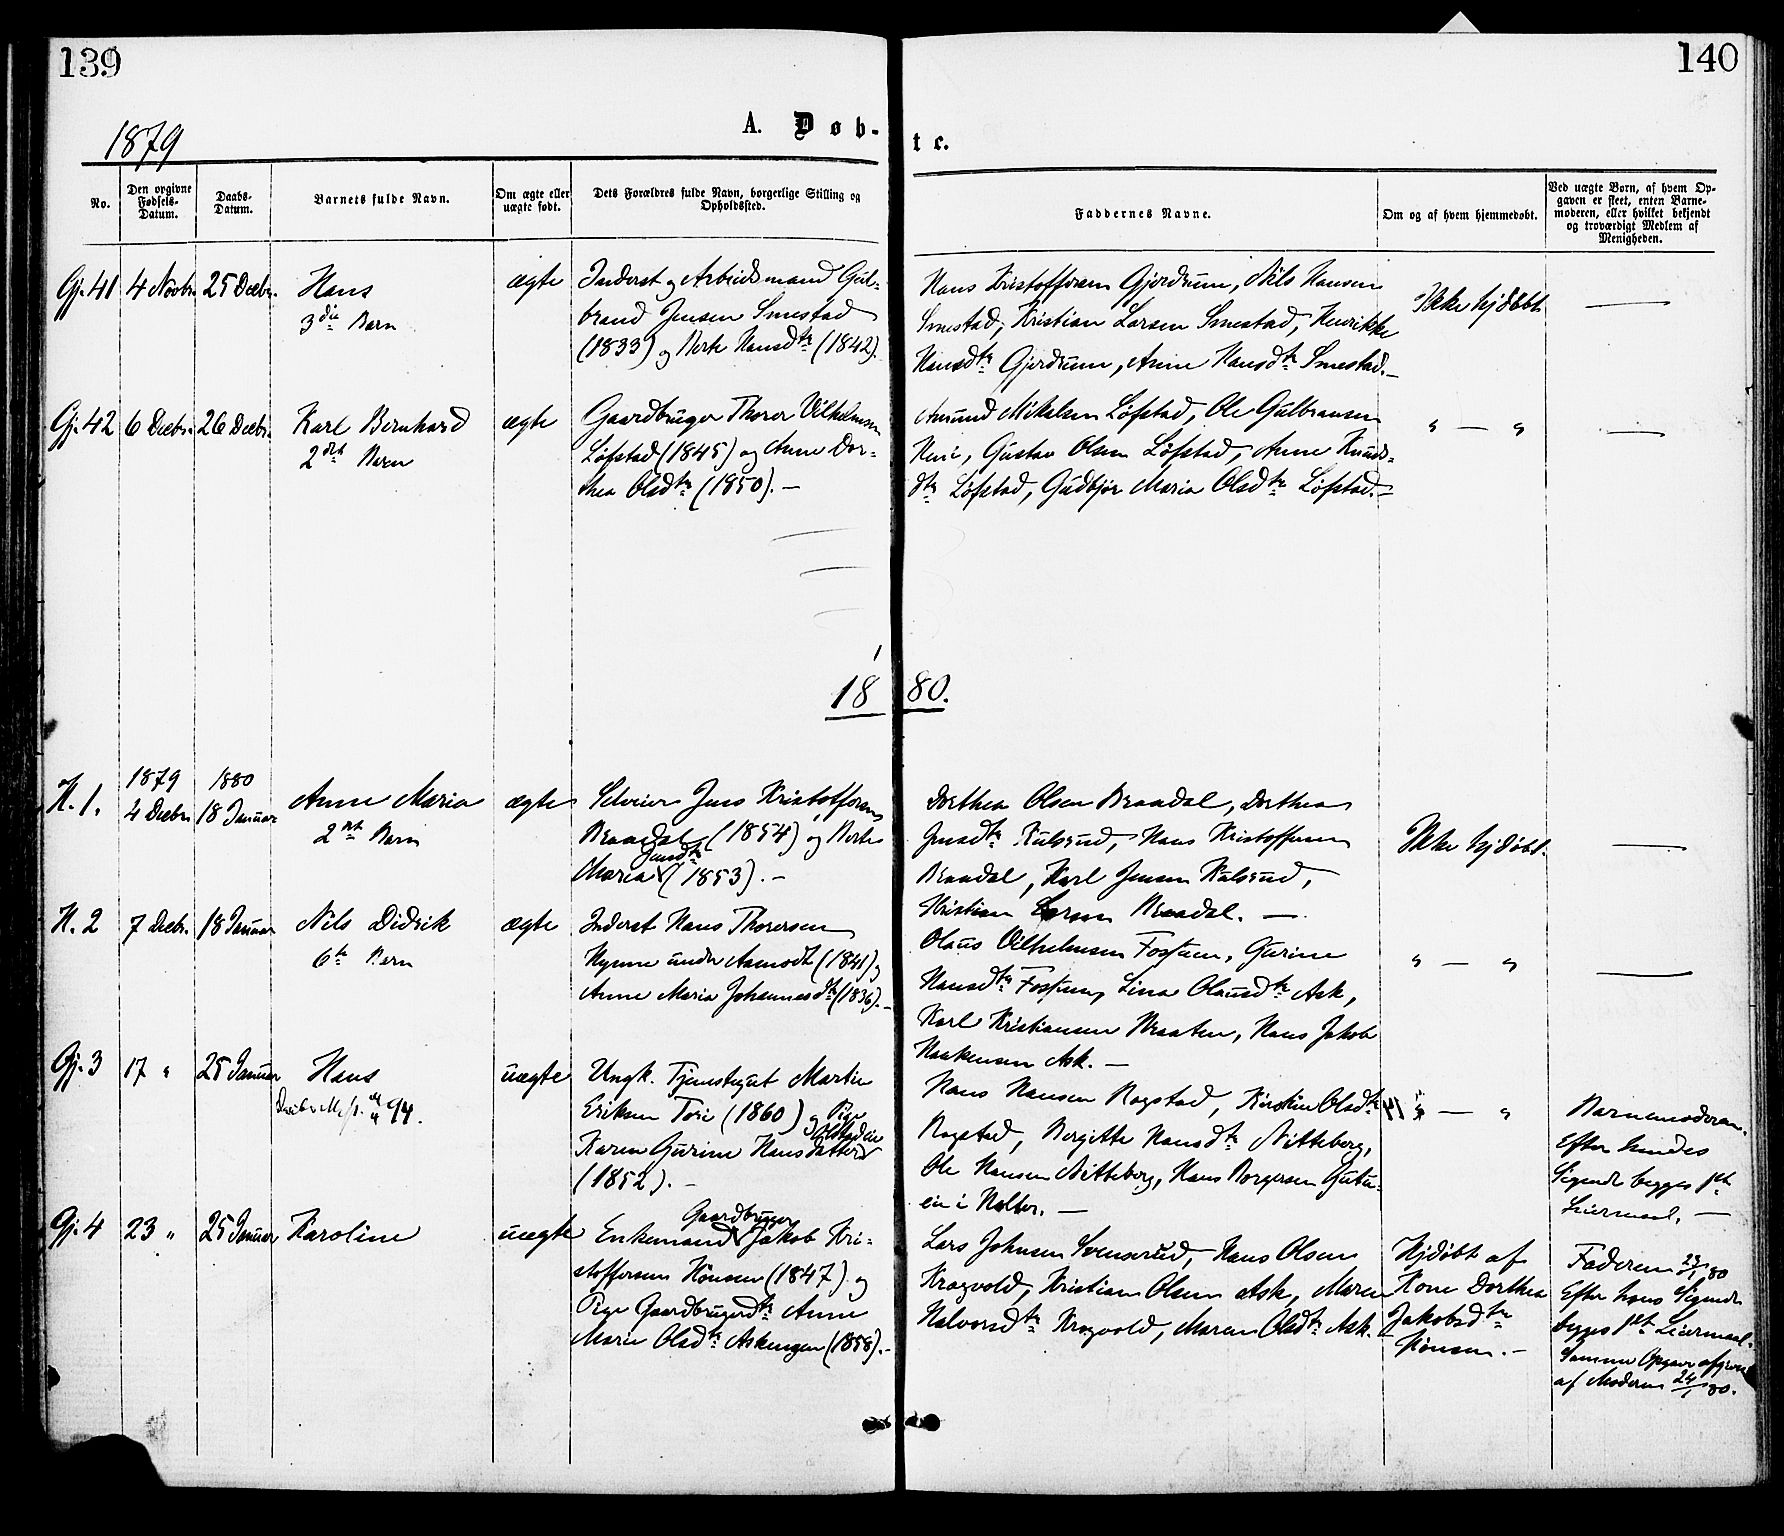 139
140
1879
A. Døb-
te.
No.
Den opgivne Fødsels-Datum.
Daabs-Datum.
Barnets fulde Navn.
Om ægte eller uægte født.
Dets Forældres fulde Navn, borgerlige Stilling og Opholdssted.
Faddernes Navne.
Om og af hvem hjemmedøbt.
Ved uægte Børn, af hvem Opgaven er skeet, enten Barnemoderen, eller hvilket bekjendt og troværdigt Medlem af Menigheden.
Gj. 41 4 Novbr. 25 Decbr. Hans
3die Barn
ægte
Inderst og Arbeidsmand Gul-
brand Jensen Smestad
(1833) og Berte Hansdtr (1842).
Hans Kristoffersen Gjerdrum, Nils Hansen
Smestad, Kristian Larsen Smestad, Henrikke
Hansdtr Gjerdrum, Anne Hansdtr Smestad.—
Ikke hjdøbt
—
Gj. 42 6 Decbr. 26 Decbr. Karl Bernhard
2det Barn
ægte
Gaardbruger Thorer Vilhelmsen
Løfstad (1845) og Anne Dor-
thea Olsdtr (1850).—
Amund Mikelsen Løfstad, Ole Gulbransen
Heni, Gustav Olsen Løfstad, Anne Knuds-
dtr Løfstad, Gudbjør Maria Olsdtr Løfstad.—
" — "
—
1880.
H. 1. 1879 4 Decbr. 1880 18 Januar Anne Maria
2det Barn
ægte
Selveier Jens Kristoffersen
Braadal (1854) og Berte
Maria Jensdtr (1853).—
Dorthea Olsen Braadal, Dorthea
Jensdtr Kulsrud, Hans Kristoffersen
Braadal, Karl Jensen Kulsrud,
Kristian Larsen Braadal.—
Ikke hjdøbt.
—
H. 2 7 Decbr. 18 Januar Nils Didrik
6te Barn
ægte
Inderst Hans Thorersen
under Aamodt (1841) og
Anne Maria Johannesdtr (1836).—
Olaus Vilhelmsen Fossum, Gurine
Hansdtr Fossum, Lina Olausdtr Ask,
Karl Kristiansen Braaten, Hans Jakob
Haakensen Ask.—
" — "
—
Gj. 3 17 " 25 Januar Hans
94.
uægte
Ungk. Tjenestegut Martin
Eriksen (1860) og Pige
Karen Gurine Hansdatter
(1852).—
Hans Hansen Rogstad, Kirstine Olsdtr
Rogstad, Bergitte Hansdtr Nitteberg,
Ole Hansen Nitteberg, Hans Borgersen
ein i Holter.—
" — "
Barnemoderen.
Efter hendes
Sigende begges 1ste
Leiermaal.—
Gj. 4 23 " 25 Januar Karoline
uægte
Enkemand Gaardbruger Jakob Kri-
stoffersen Hønsen (1847) og
Pige Gaardbrugerdtr Anne
Marie Olsdtr Askengen (1858).—
Lars Johnsen Svenserud, Hans Olsen
Kragvold, Kristian Olsen Ask, Maren
Halvorsdtr Kragvold, Maren Olsdtr Ask.—
Hjdøbt af
Kone Dorthea
Jakobsdtr
Hønsen.—
Faderen 23/1 80
Efter hans Sigende
begges 1ste Leiermaal.
Samme Opgave afgiven
af Moderen 24/1 80.